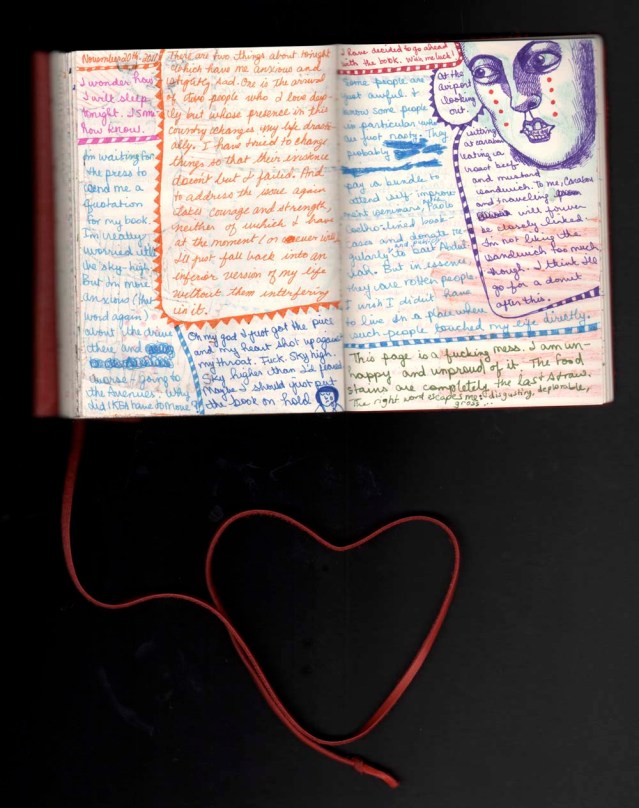 November 20th, 2011
I wonder how
I will sleep
tonight.
how know.
I'm waiting for
the press to
send me a
quotation
for my book.
I'm really
worried it'll
be sky-high.
But I'm more
anxious (that
word again)
about the drive
there, and
of course - going to
the Avenues. Why
did IKEA have to move
There are two things about tonight
which have me anxious and
slightly sad. One is the arrival
of two people who I love deep-
ly but whose presence in this
country changes my life drastic-
ally. I have tried to change
things so that their existence
doesn't but I failed. And
to address the issue again
takes courage and strength,
neither of which I have
at the moment (or ever will).
I'll just fall back into an
inferior version of my life
without them interfering
in it.
Oh my god I just got the price
and my heart shot up again
my throat. Fuck. Sky high.
Sky higher than I'd feared.
Maybe I should just put
the book on hold
I have decided to go ahead
with the book. Wish me luck!
Some people are
just awful. I
know some people
in particular who
are just nasty. They
probably
pay a bundle to
attend self-improve
ment seminars, have
leather-lined book
cases and donate re-
gularly to Bait Abdul-
lah. But in essence
they are rotten people.
I wish I didn't have
to live in a place where
such people touched my life directly.
At the
airport
looking
out
sitting
at caribou
eating a
roast beef
and mustard
sandwich. To me, Caribou
and traveling
will forever
be closely linked.
I'm not liking the
sandwich too much
though. I think I'll
go for a donut
after this.
This page is a fucking mess. I am un-
happy and unproud of it. The food
stains are completely the last straw.
The right word escapes me: disgusting, deplorable,
gross...